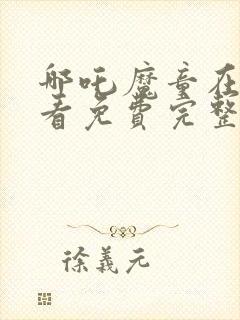 哪吒魔童在
看免费完整
徐義元